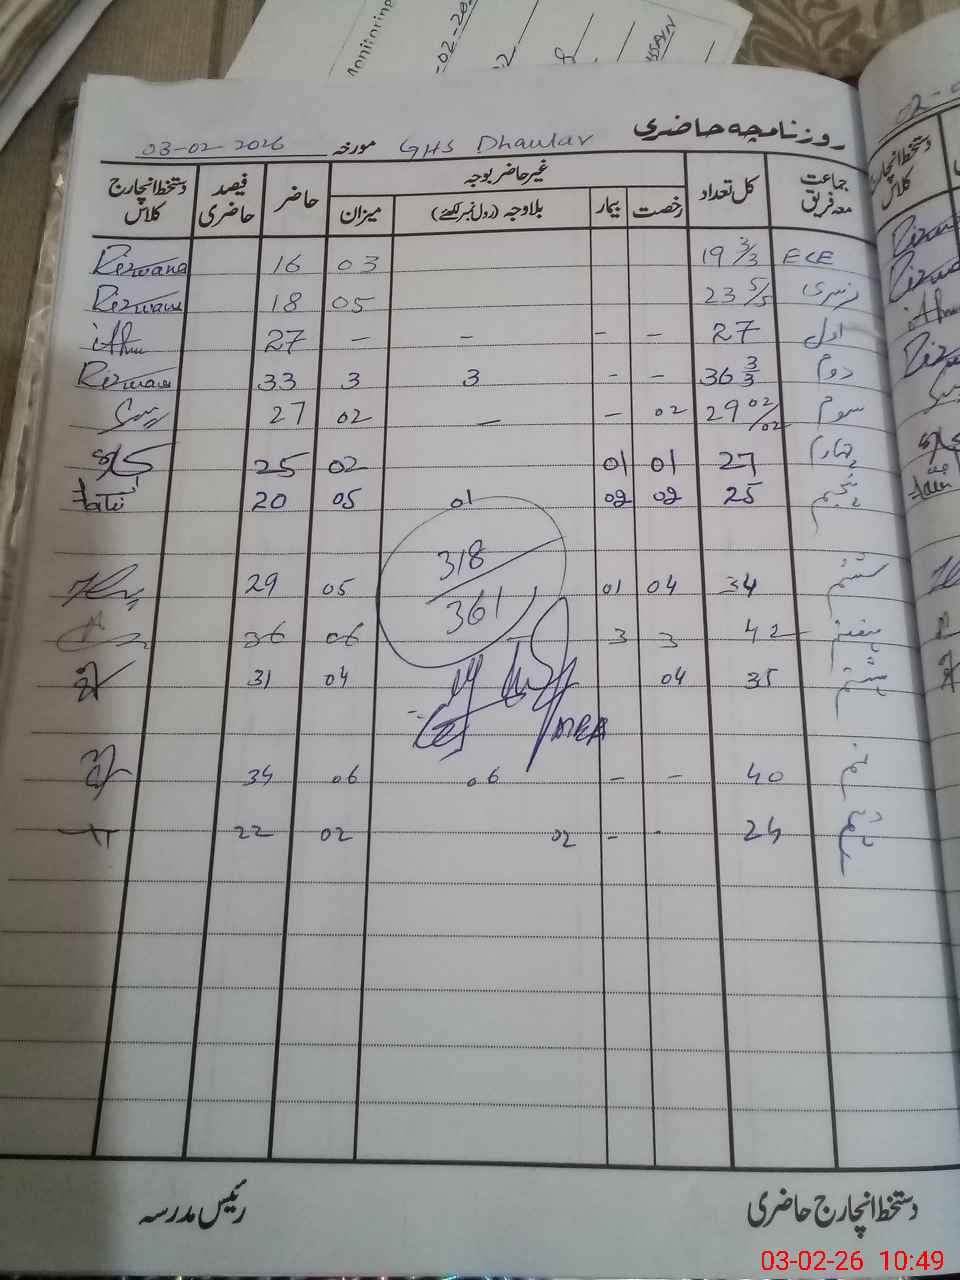 Monitoring
روزنامچہ حاضری
GHS Dhaular مورخہ 03-02-2026
جماعت معہ فریق کل تعداد غیر حاضر بوجہ حاضر فیصد حاضری دستخط انچارج کلاس
رخصت بیمار بلاوجہ (رول نمبر لکھئے) میزان
ECE 19 3/3 03 16 Rizwana
نرسری 23 5/5 05 18 Rizwana
اول 27 - - - - 27
دوم 36 3/3 - - 3 3 33 Rizwana
سوم 29 02/02 02 - - 02 27
چہارم 27 01 01 02 25
پنجم 25 02 02 01 05 20
318/361
ششم 34 04 01 05 29
ہفتم 42 3 3 06 36
ہشتم 35 04 04 31
نہم 40 - - 06 06 34
دہم 24 - - 02 02 22
دستخط انچارج حاضری رئیس مدرسہ
03-02-26 10:49